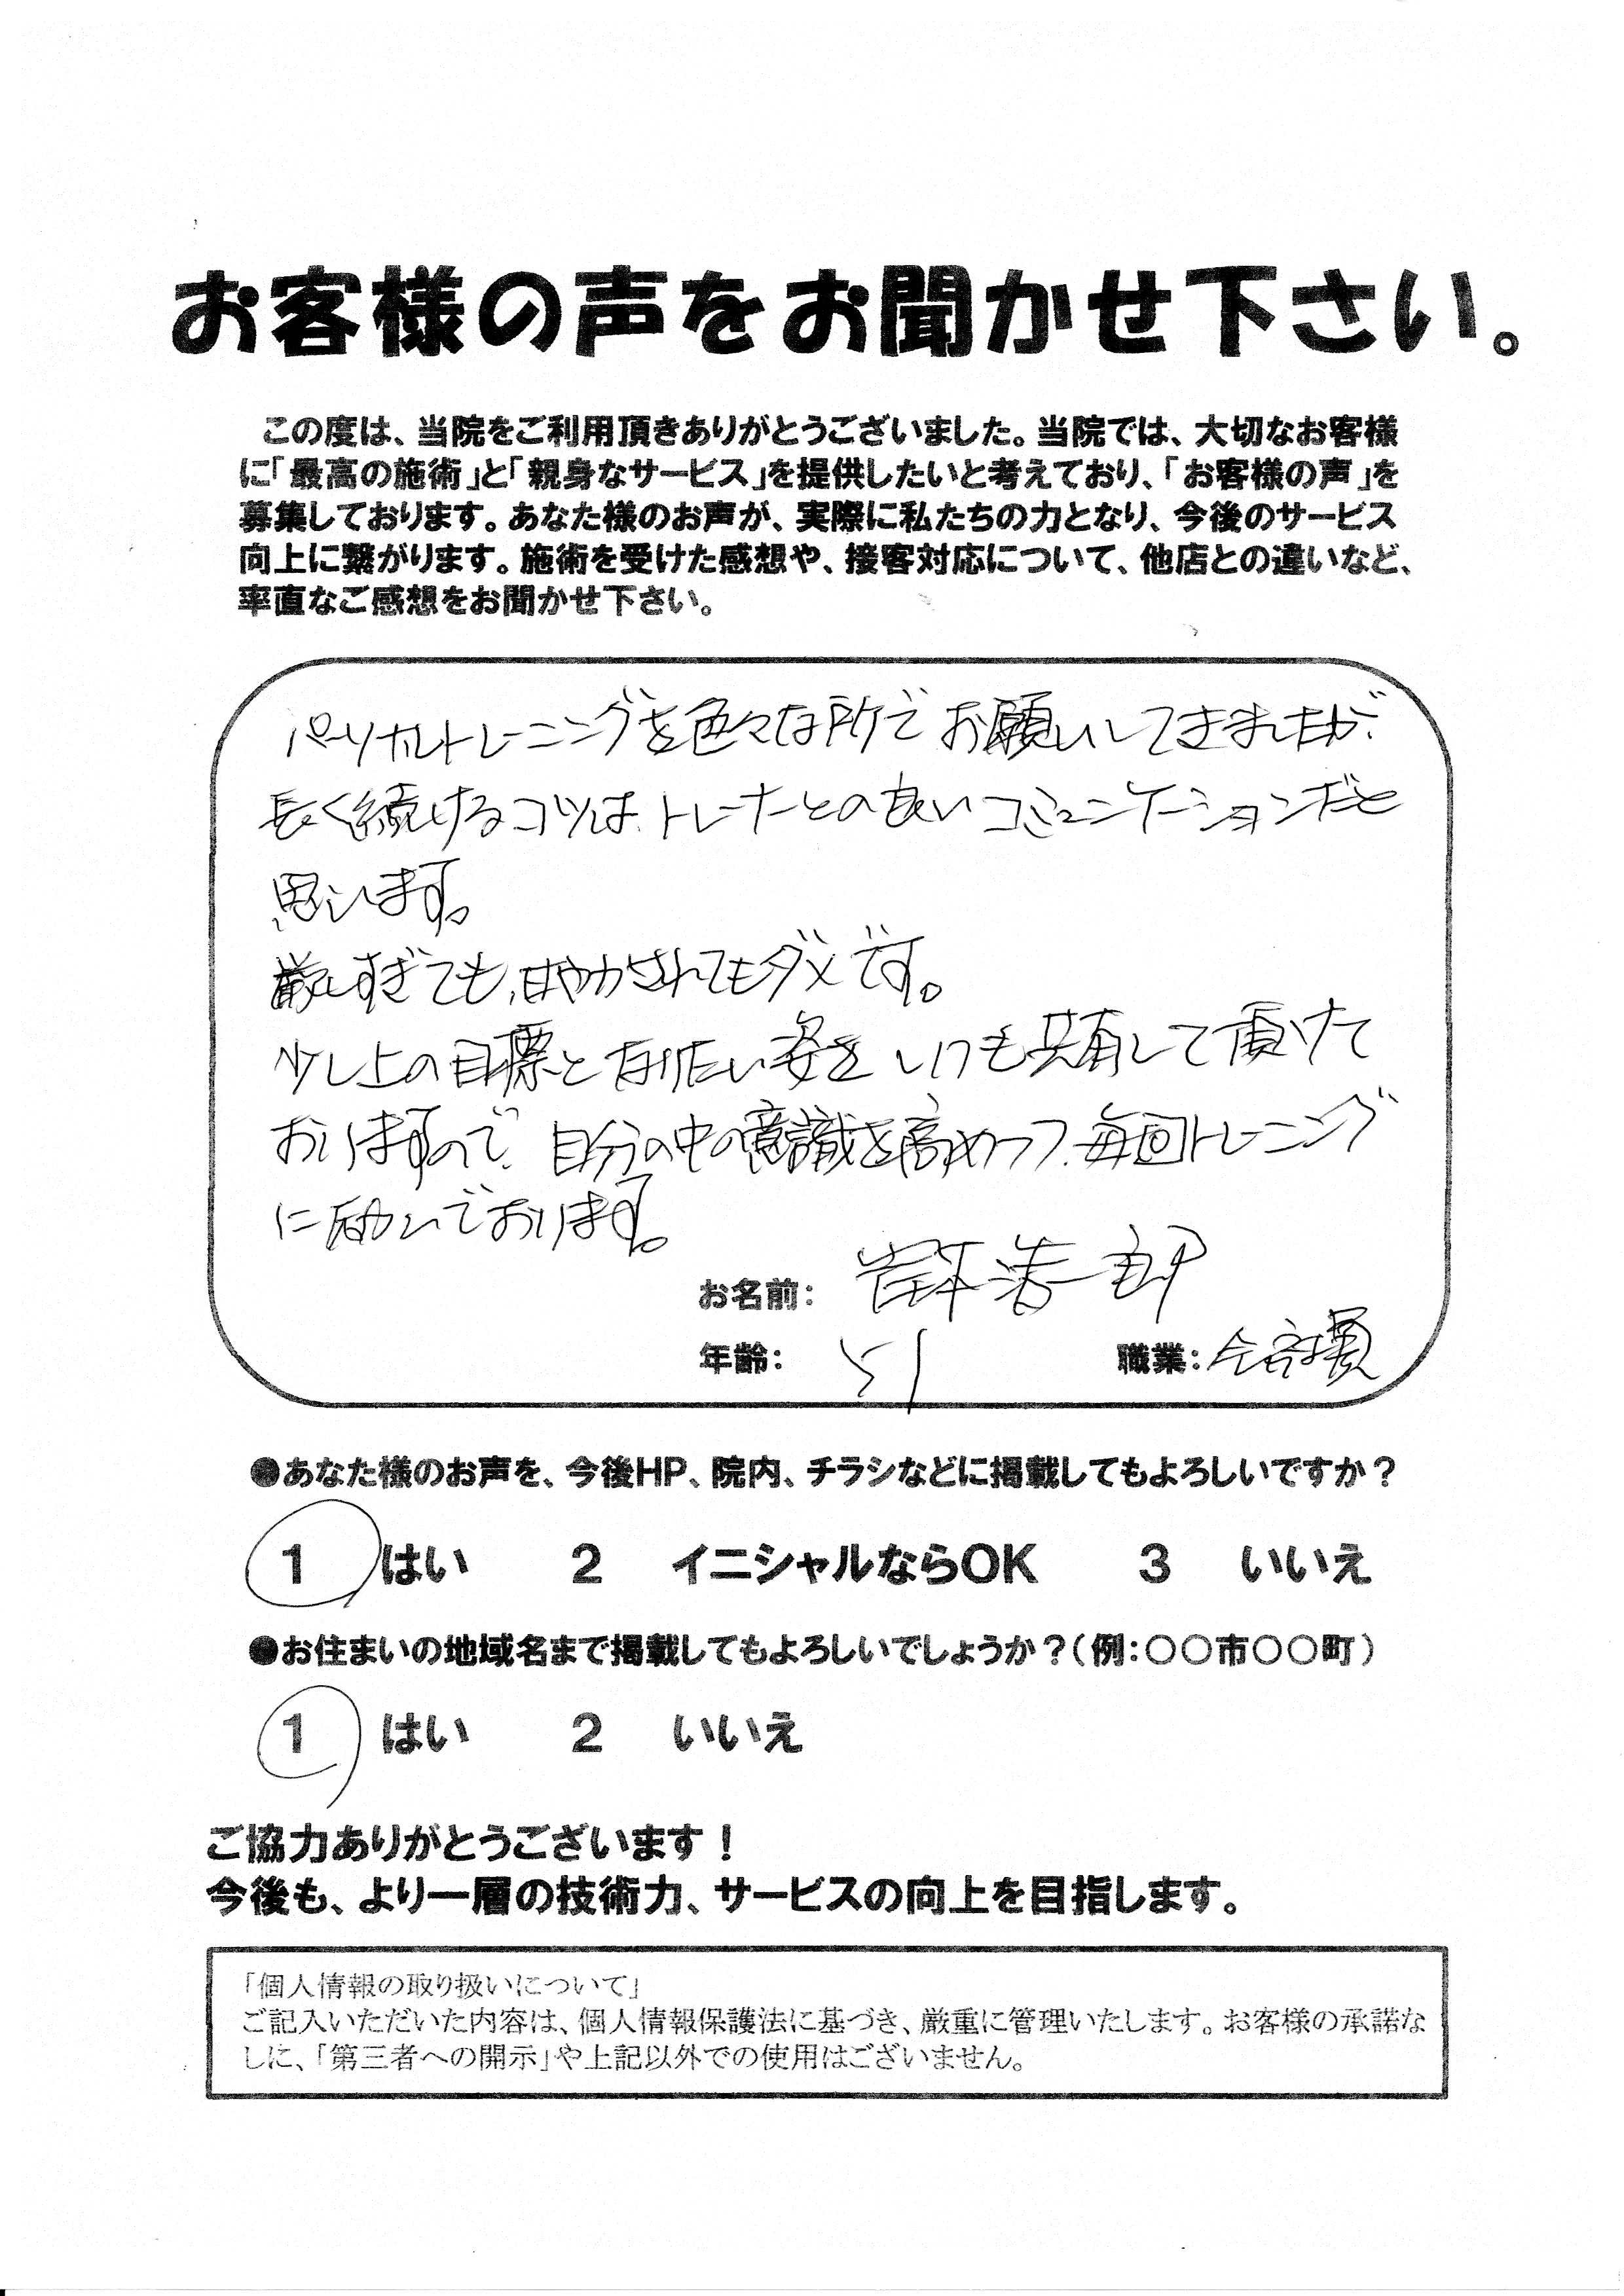 お客様の声をお聞かせ下さい。
この度は、当院をご利用頂きありがとうございました。当院では、大切なお客様
に「最高の施術」と「親身なサービス」を提供したいと考えており、「お客様の声」を
募集しております。あなた様のお声が、実際に私たちの力となり、今後のサービス
向上に繋がります。施術を受けた感想や、接客対応について、他店との違いなど、
率直なご感想をお聞かせ下さい。
パーソナルトレーニングを色々な所でお願いしてきましたが、
長く続けるコツは、トレーナーとの良いコミュニケーションだと
思います。
厳しすぎても、甘やかされてもダメです。
少し上の目標となりたい姿をいつも共有して頂けて
おりますので、自分の中の意識を高めつつ、毎回トレーニング
に励んでおります。
お名前： 岸本浩一郎
年齢： 51 職業：会社員
●あなた様のお声を、今後HP、院内、チラシなどに掲載してもよろしいですか？
1 はい 2 イニシャルならOK 3 いいえ
●お住まいの地域名まで掲載してもよろしいでしょうか？（例：〇〇市〇〇町）
1 はい 2 いいえ
ご協力ありがとうございます！
今後も、より一層の技術力、サービスの向上を目指します。
「個人情報の取り扱いについて」
ご記入いただいた内容は、個人情報保護法に基づき、厳重に管理いたします。お客様の承諾な
しに、「第三者への開示」や上記以外での使用はございません。